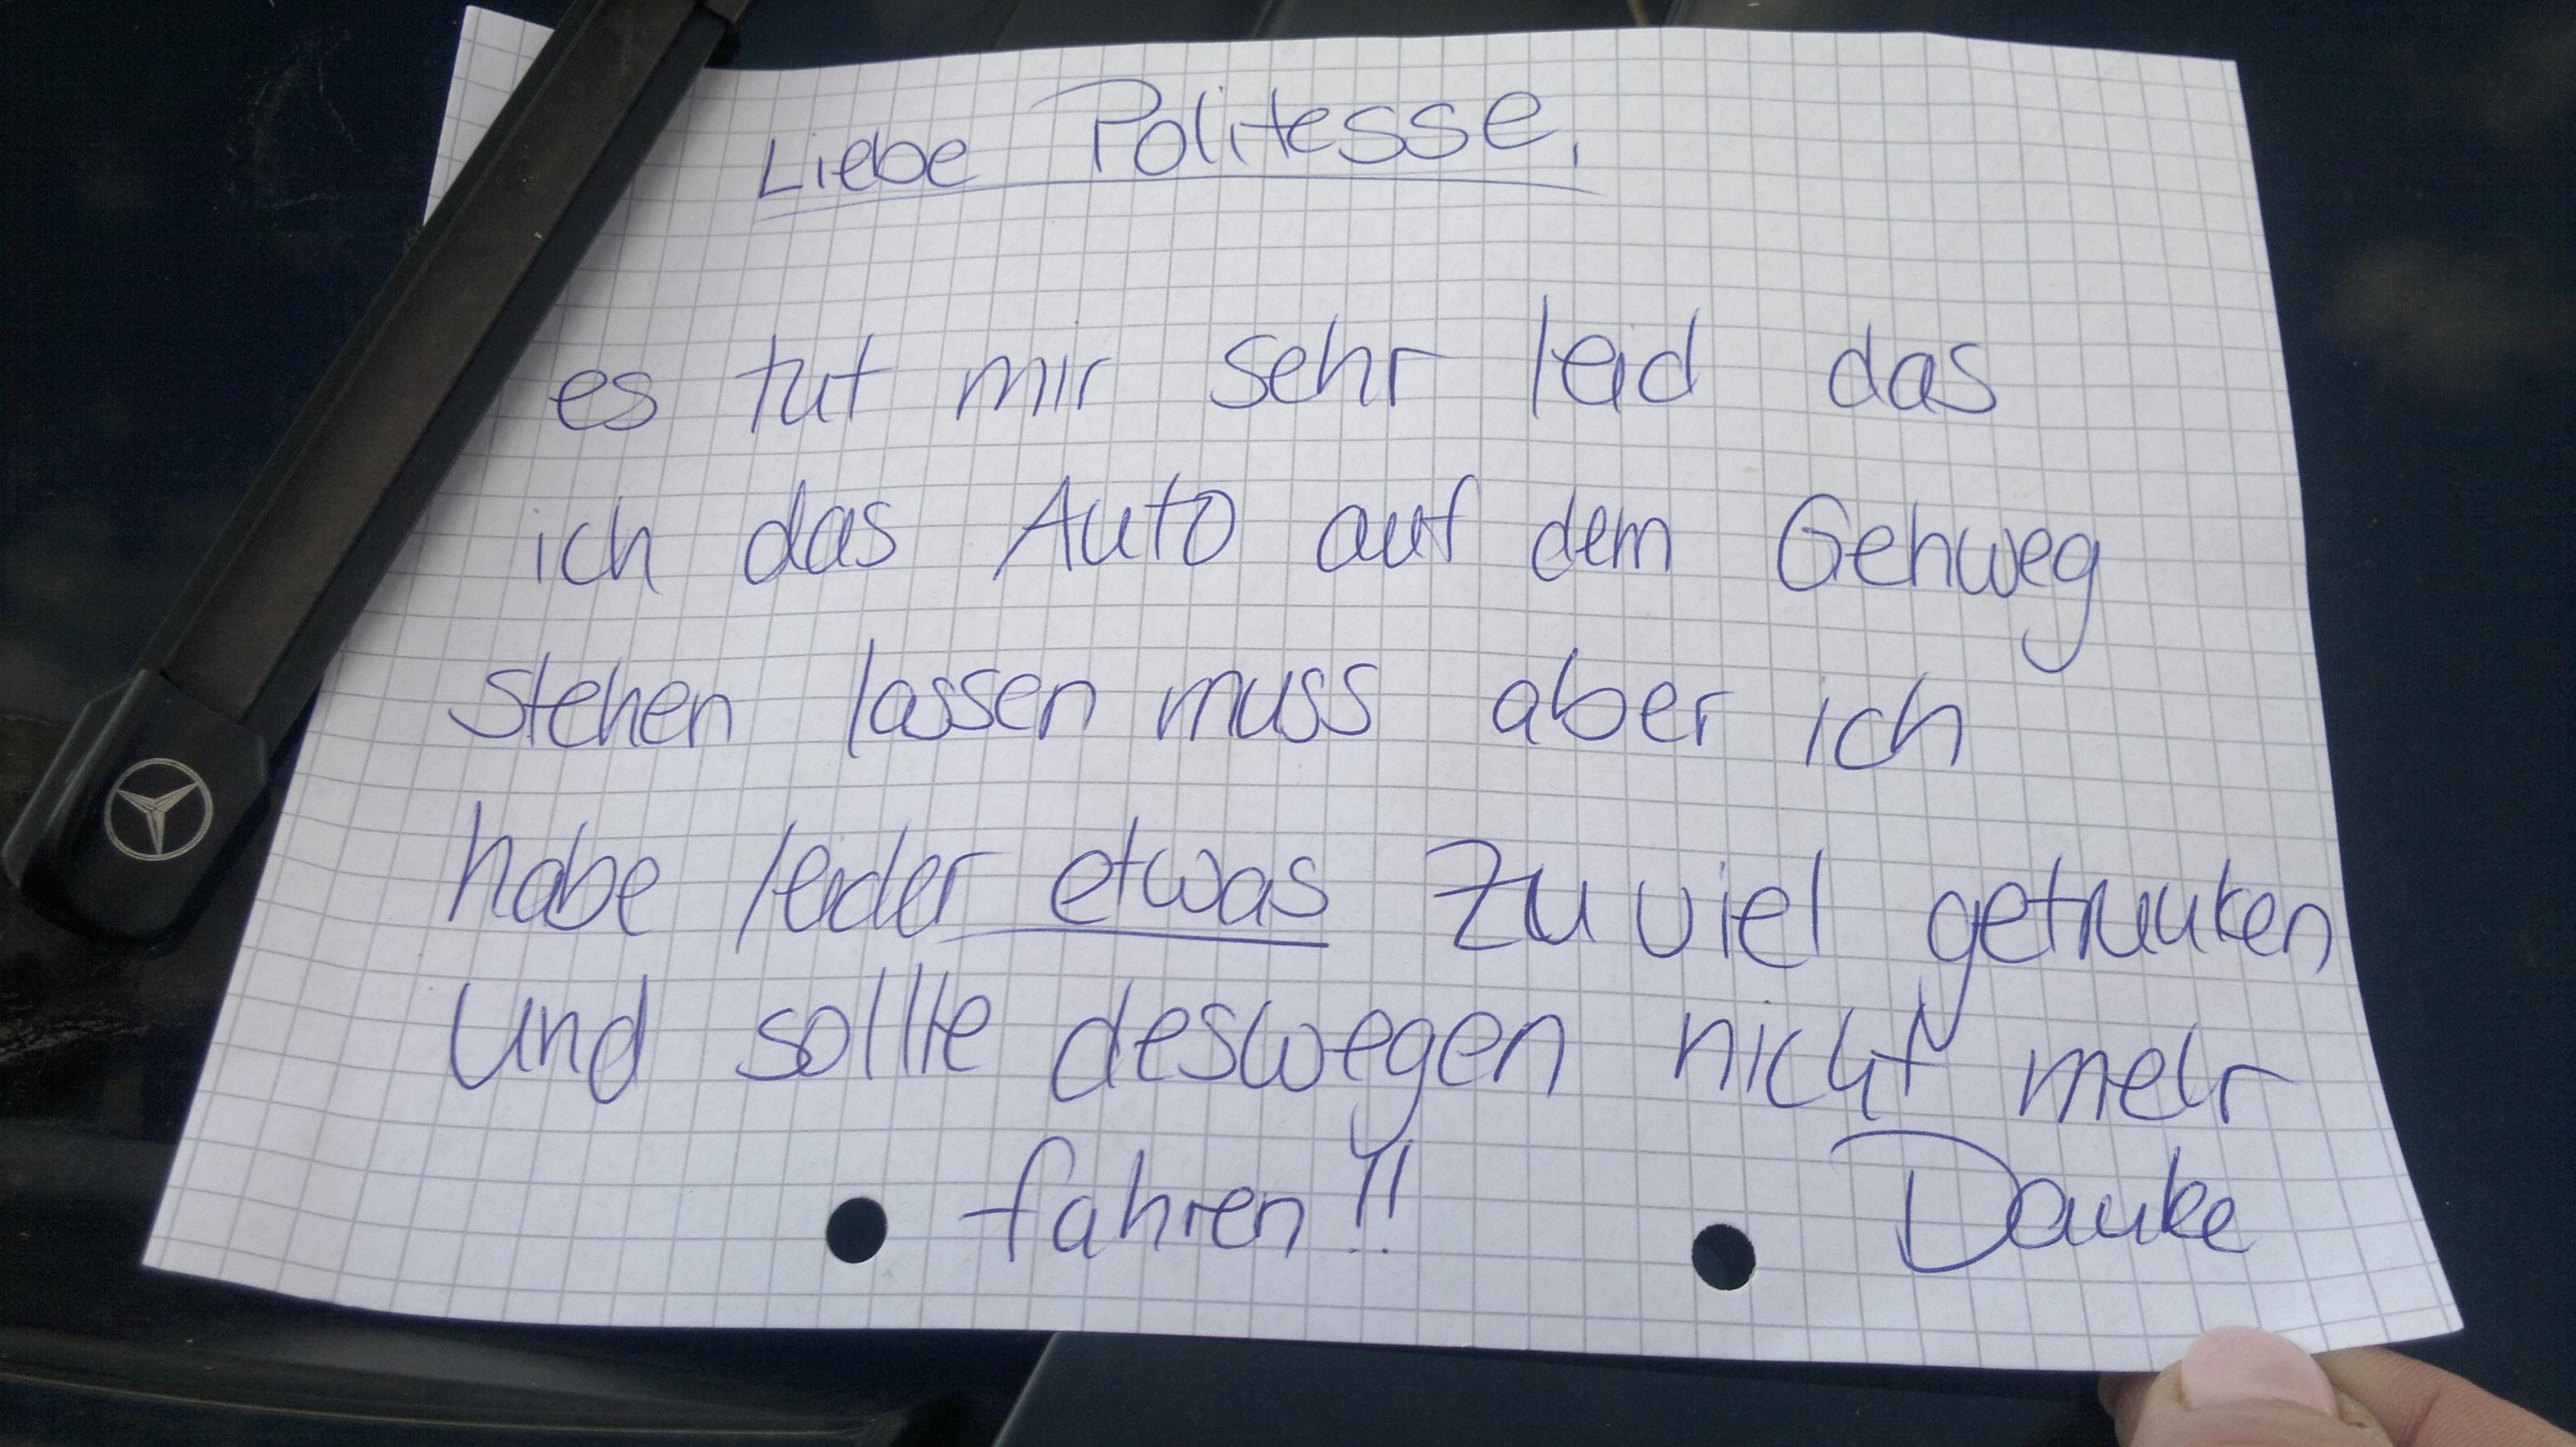 Liebe Politesse,
es tut mir sehr leid das
ich das Auto auf dem Gehweg
stehen lassen muss aber ich
habe leider etwas zu viel getrunken
und sollte deswegen nicht mehr
fahren!!
Danke